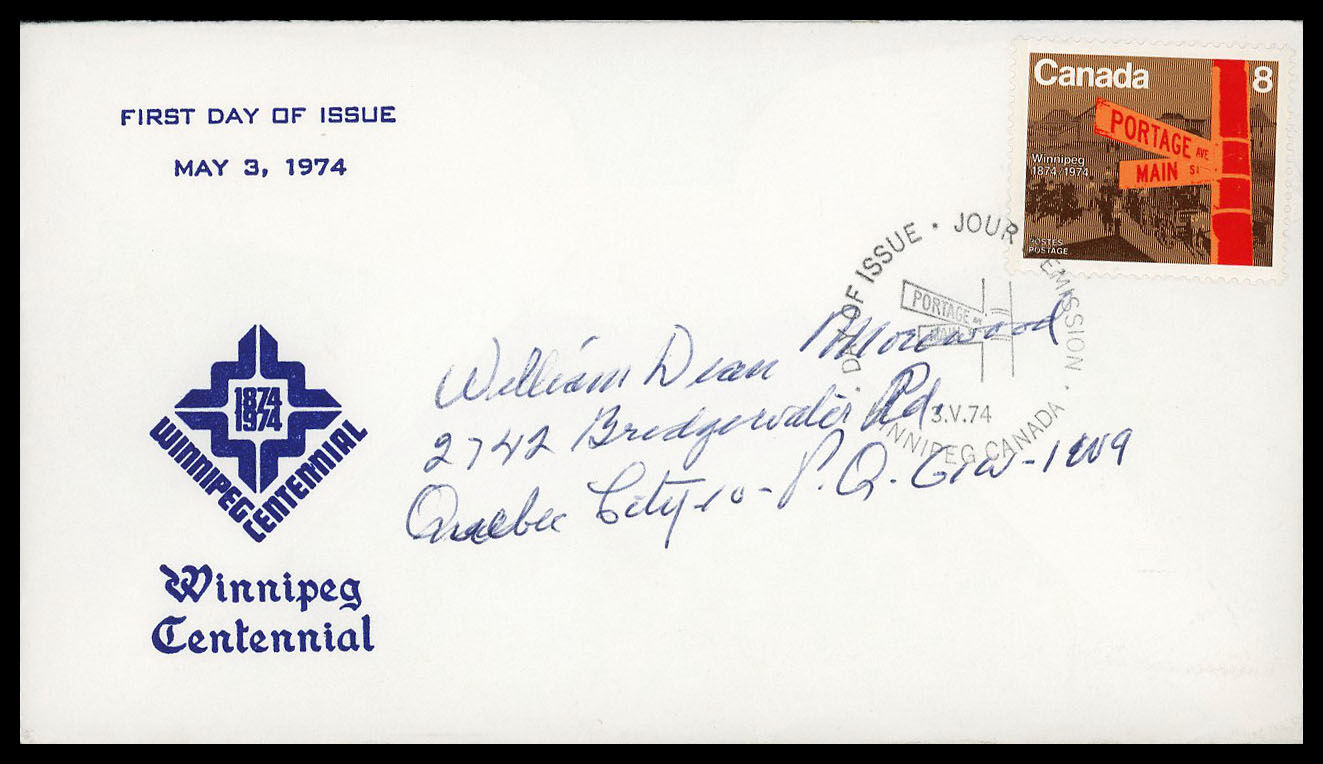 FIRST DAY OF ISSUE
MAY 3, 1974
Canada 8
PORTAGE AVE
MAIN St
Winnipeg
1874/1974
POSTES
POSTAGE
DAY OF ISSUE · JOUR EMISSION ·
PORTAGE AVE
MAIN St
3.V.74
WINNIPEG CANADA
William Dean Morewood
2742 Bridgewater Rd.
Quebec City-10-P.Q. G1W-1W9
1874
1974
WINNIPEG
CENTENNIAL
Winnipeg
Centennial